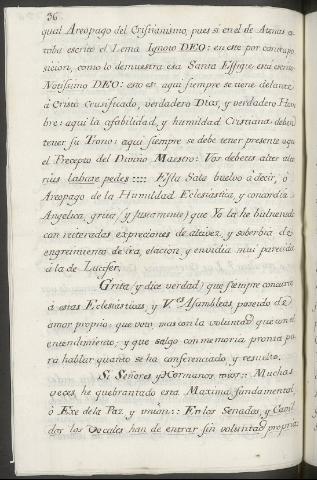 36
qual Areopago del Cristianismo, pues si en el de Atenas es
taba escrito el Lema Ignoto DEO: en este por contrapo
sicion, como lo demuestra esta Santa Effigie está escrito
Notissimo DEO: esto es: aqui siempre se tiene delante
á Cristo Crusificado, verdadero Dios, y verdadero Hom
bre: aqui la afabilidad, y humildad Cristiana deben
tener su Trono: aqui siempre se debe tener presente aqu
el Precepto del Divino Maestro: Vos debetis alter alte
rius labare pedes :::: Esta Sala buelvo á decir, ó
Areopago de la Humildad Eclesiástica, y concordia
Angelica, grita (y justamente) que Yo la he
con reiteradas expreciones de altivez, y soberbia de
engreimiento de ira, elacion, y envidia mui parecida
á la de Lucifér.
Grita (y dice verdad) que siempre concurrí
á estas Eclesiásticas, y V.es Asambleas, poseido de
amor proprio: que voto mas con la voluntad que con el
entendimiento; y que salgo con memoria pronta pa
ra hablar quanto se ha conferenciado, y resuelto.
Si Señores y Hermanos mios:: Muchas
veces, he quebrantado esta Maxima fundamental,
ó Exe de la Paz, y union:: En los Senados, y Cavil
dos los Vocales han de entrar sin voluntad propria